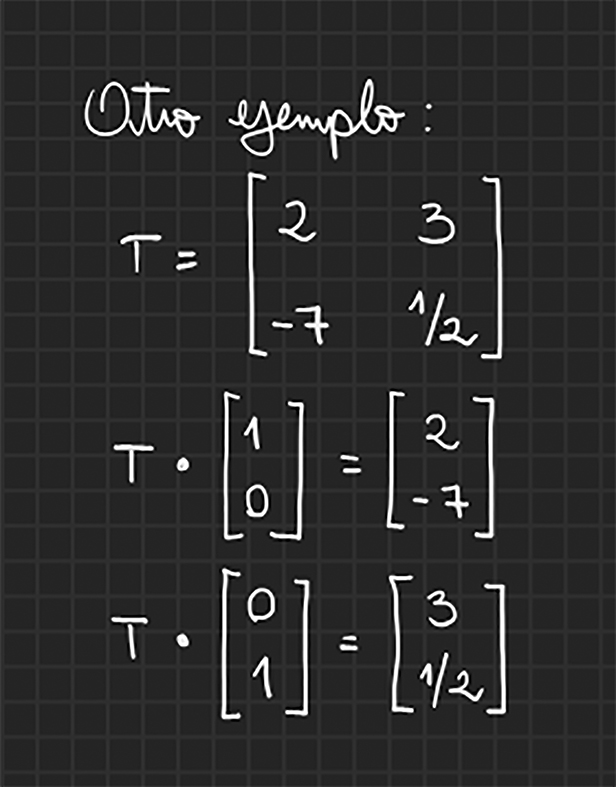 Otro ejemplo:
T = [ 2 3 ]
[ -7 1/2 ]
T · [ 1 ] = [ 2 ]
[ 0 ] [ -7 ]
T · [ 0 ] = [ 3 ]
[ 1 ] [ 1/2 ]